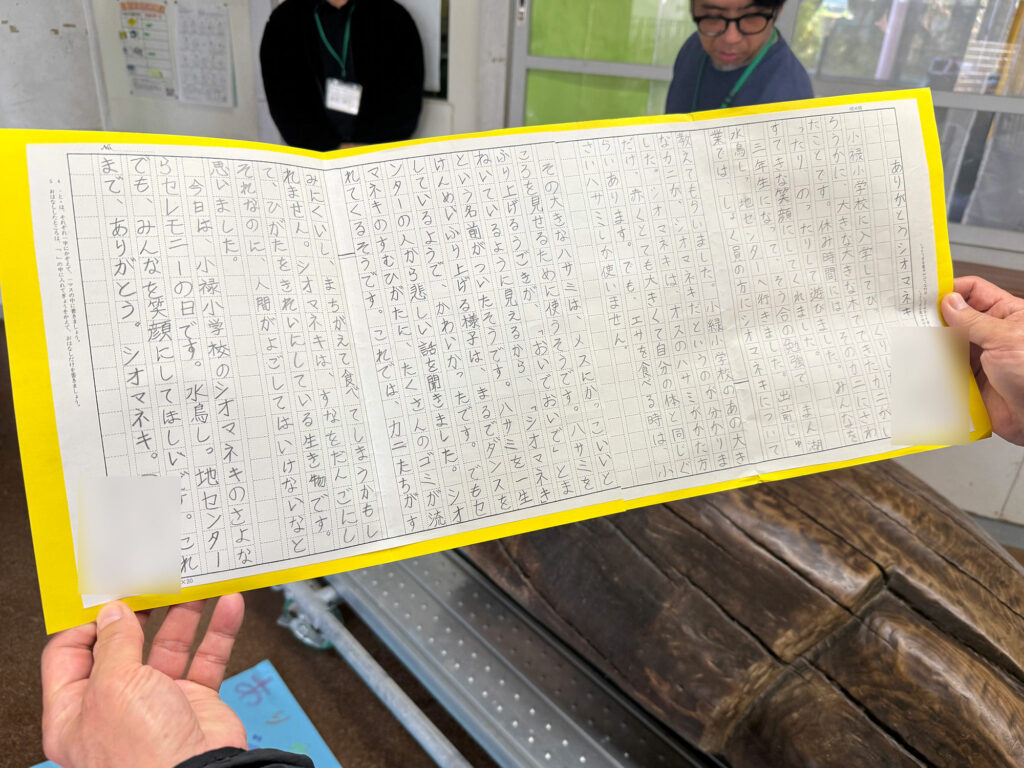 ありがとうシオマネキ
小禄小学校に入学してびっくりし
ろうかに、大きな大きな木でできたカニが
たことです。休み時間には、そのカニにさわ
ったり、のったりして遊びました。みんなを
すてきな笑顔にしてくれました。
三年生になって、そう合の勉強で、まん湖
水鳥・しっ地センターへ行きました。出前じゅ
業では、しょく員の方にシオマネキについて
教えてもらいました。小禄小学校のあの大き
なカニが、シオマネキだというのが分かりま
した。シオマネキは、オスのハサミがかた方
だけ、赤くとても大きくて自分の体と同じぐ
らいあります。でも、エサを食べる時は、小
さいハサミしか使いません。
その大きなハサミは、メスにかっこいいと
ころを見せるために使うそうです。ハサミを
ふり上げるうごきが、「おいでおいで」とま
ねいているように見えるから、「シオマネキ
という名前がついたそうです。ハサミを一生
けんめいふり上げる様子は、まるでダンスを
しているようで、かわいかったです。でもセ
ンターの人から悲しい話を聞きました。シオ
マネキのすむひがたに、たくさんのゴミが流
れてくるそうです。これでは、カニたちがす
みにくいし、まちがえて食べてしまうかもし
れません。シオマネキは、すなをだんごにし
て、ひがたをきれいにしている生き物です。
それなのに、人間がよごしてはいけないなと
思いました。
今日は、小禄小学校のシオマネキのさよな
らセレモニーの日です。水鳥・しっ地センター
でも、みんなを笑顔にしてほしいです。これ
まで、ありがとう。シオマネキ。
No.